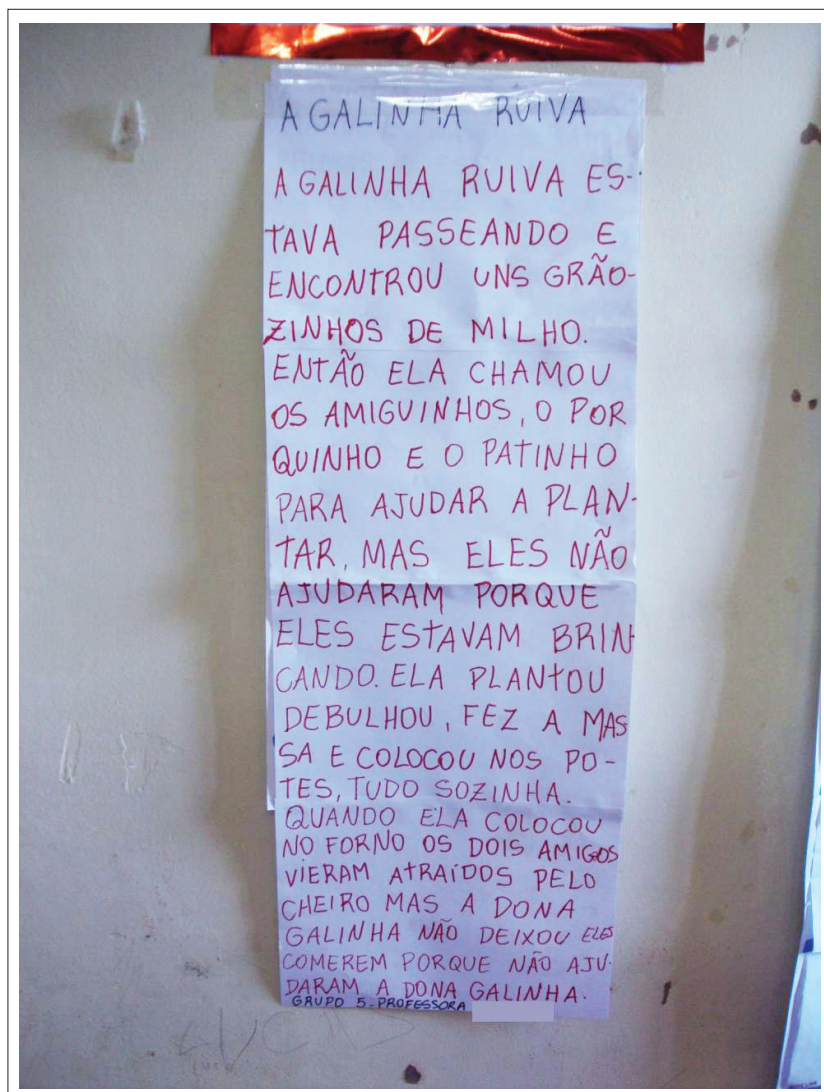 A GALINHA RUIVA
A GALINHA RUIVA ES-
TAVA PASSEANDO E
ENCONTROU UNS GRÃO-
ZINHOS DE MILHO.
ENTÃO ELA CHAMOU
OS AMIGUINHOS, O POR
QUINHO E O PATINHO
PARA AJUDAR A PLAN-
TAR, MAS ELES NÃO
AJUDARAM PORQUE
ELES ESTAVAM BRIN
CANDO. ELA PLANTOU
DEBULHOU, FEZ A MAS
SA E COLOCOU NOS PO-
TES, TUDO SOZINHA.
QUANDO ELA COLOCOU
NO FORNO OS DOIS AMIGOS
VIERAM ATRAÍDOS PELO
CHEIRO MAS A DONA
GALINHA NÃO DEIXOU ELES
COMEREM PORQUE NÃO AJU-
DARAM A DONA GALINHA.
GRUPO 5 - PROFESSORA